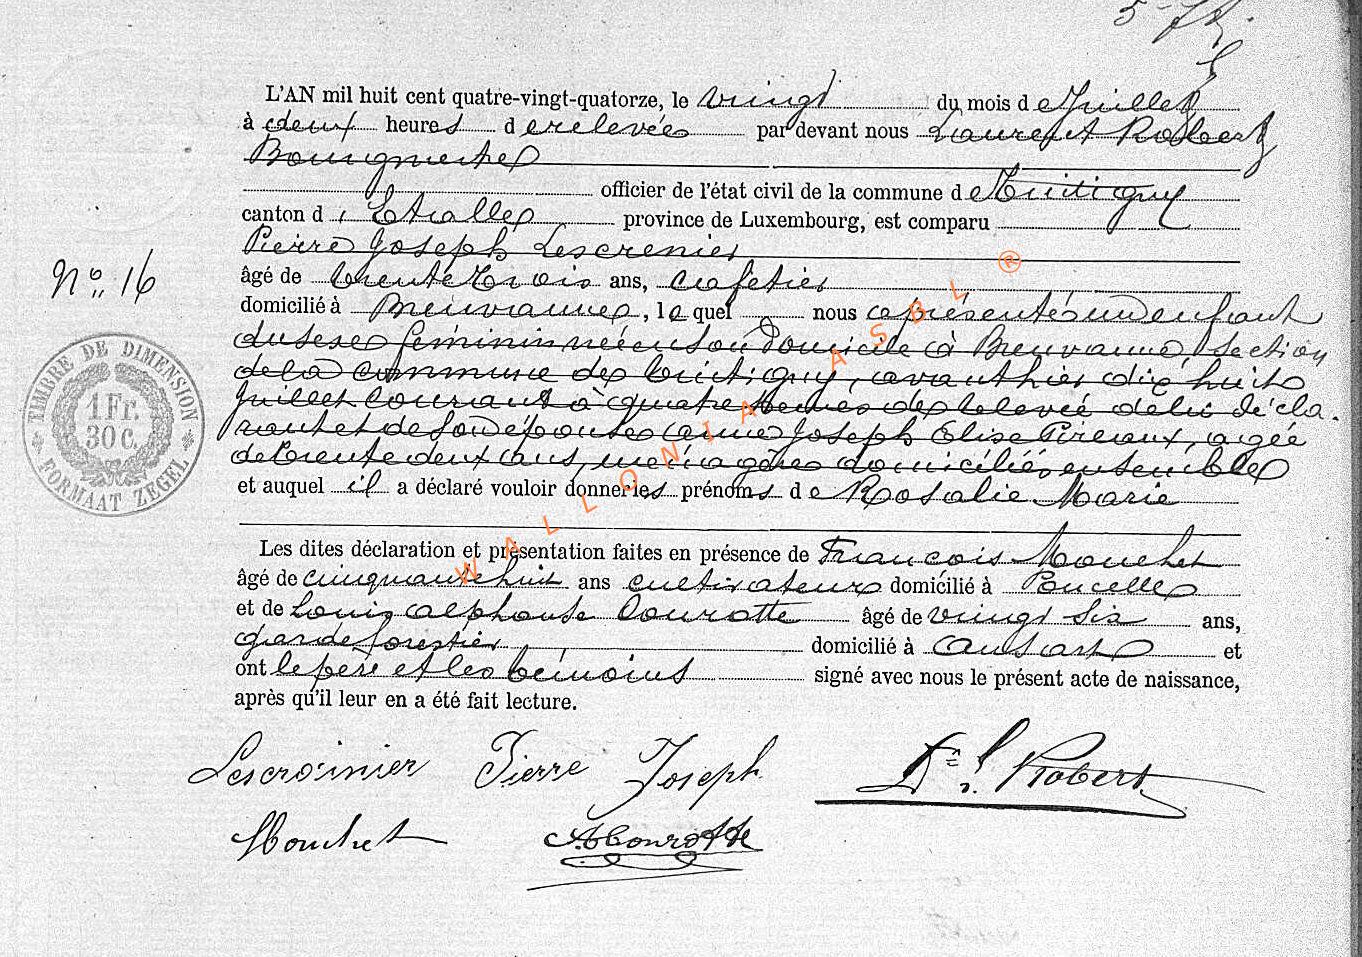 L'AN mil huit cent quatre-vingt-quatorze, le vingt du mois de Juillet
à deux heures de relevée par devant nous Laurent Robert
Bourgmestre
officier de l'état civil de la commune de Tintigny
canton d'Etalle province de Luxembourg, est comparu
Pierre Joseph Lescrenier
âgé de trente trois ans, cafetier
N° 16
domicilié à Breuvanne, lequel nous a présenté un enfant
du sexe féminin née en son domicile à Breuvanne, section
de la commune de Tintigny, avant hier dix huit
Juillet courant à quatre heures de relevée de lui décla-
rant et de son épouse Anne Joseph Elise Pireaux, agée
de trente deux ans, ménagère domiciliés ensemble
et auquel il a déclaré vouloir donner les prénoms de Rosalie Marie
Les dites déclaration et présentation faites en présence de François Mouchet
âgé de cinquante huit ans cultivateur domicilié à Poncelle
et de Louis Alphonse Courotte âgé de vingt six ans,
garde forestier domicilié à Ansart et
ont le père et les témoins signé avec nous le présent acte de naissance,
après qu'il leur en a été fait lecture.
Lescroinier Pierre Joseph Dr L. Robert
Mouchet A Courotte
TIMBRE DE DIMENSION
1 Fr.
30 C.
FORMAAT ZEGEL
WALLONIA ASBL ®